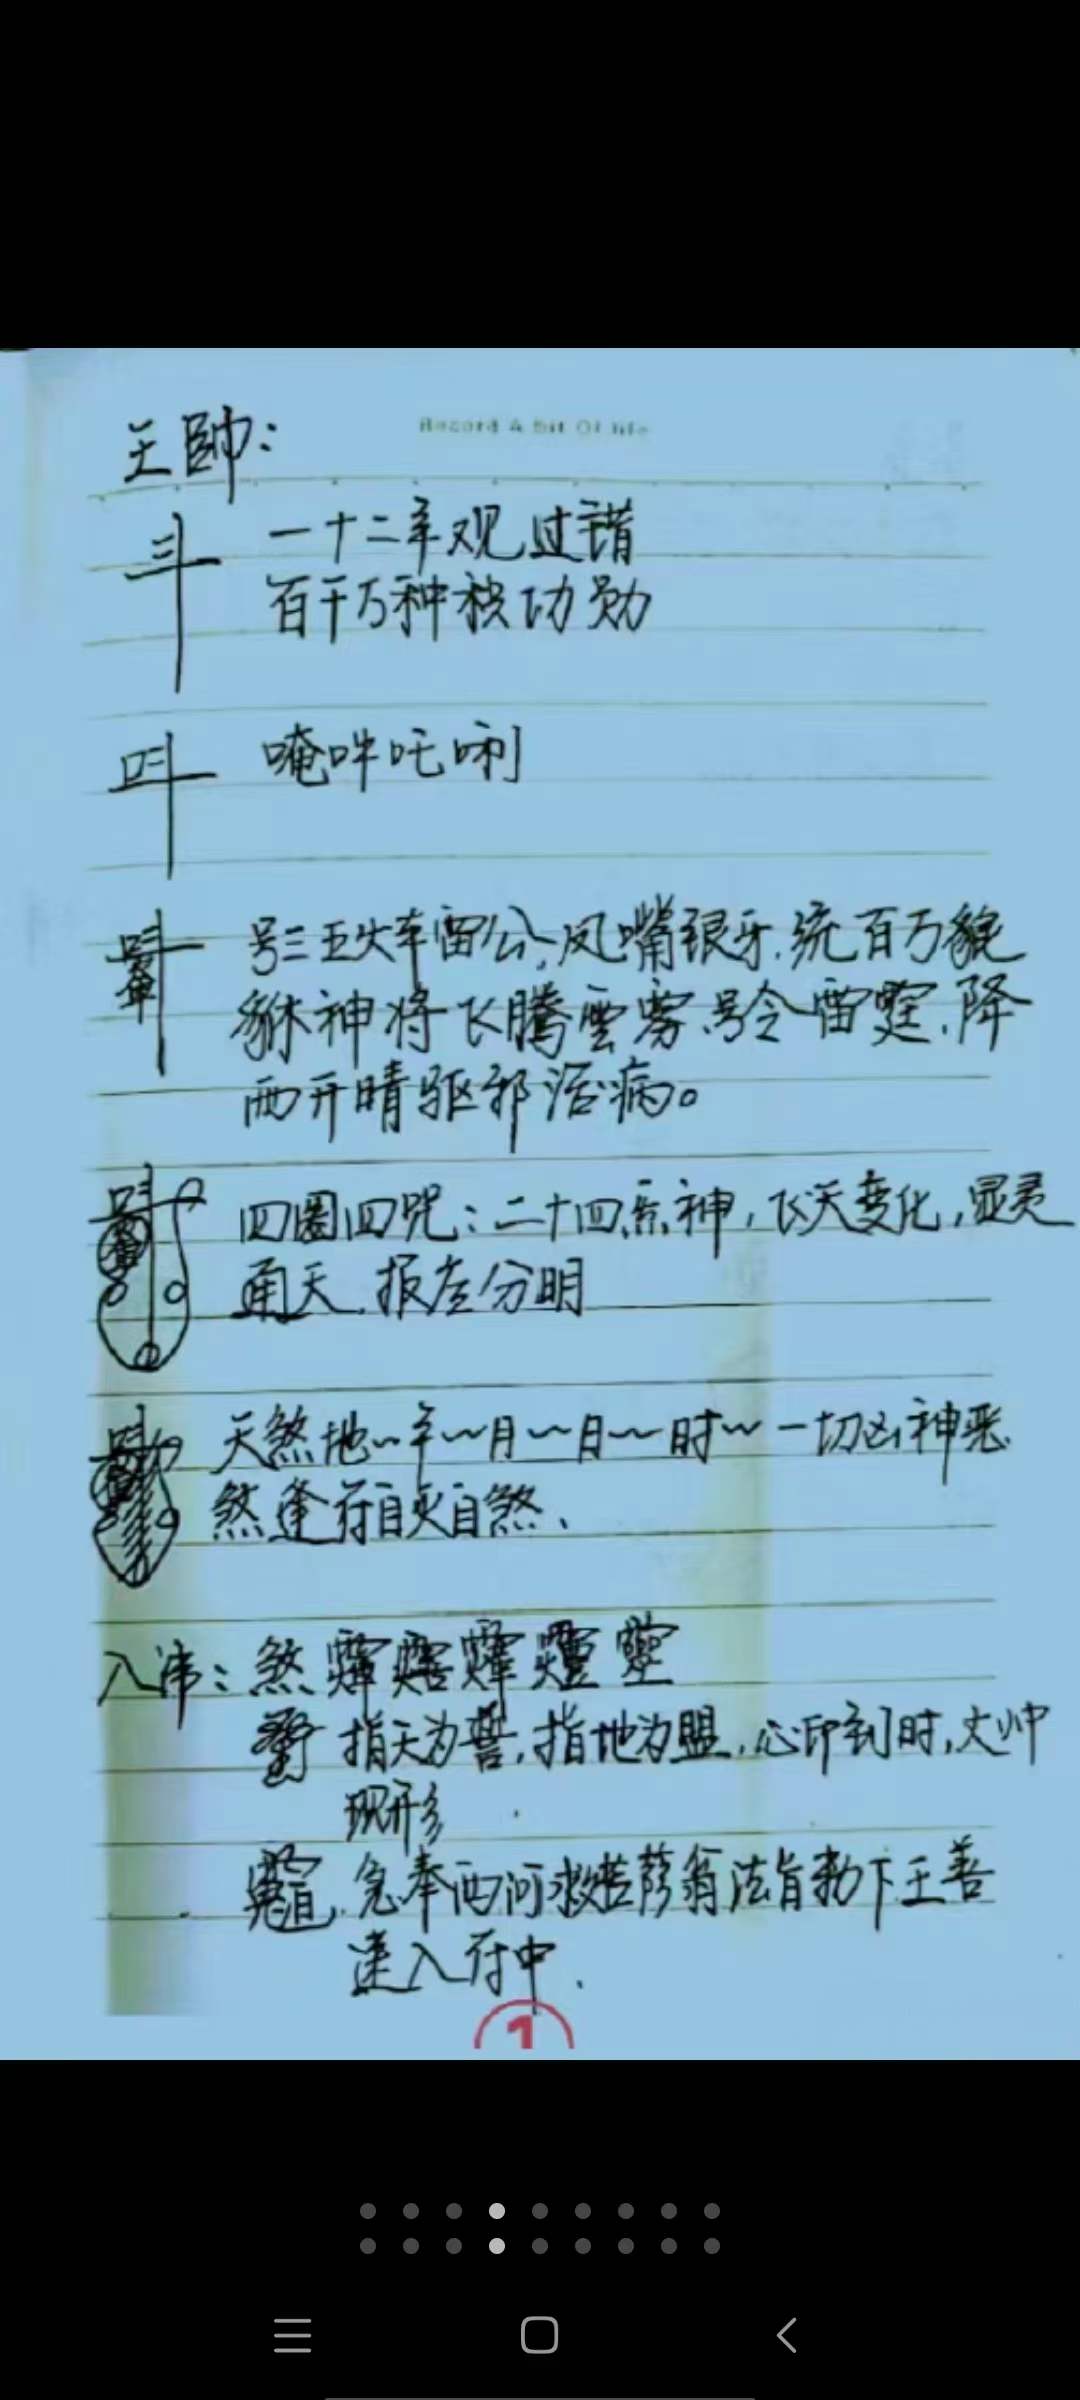 Record A bit Of life
王帥：
一十二年观过错
百千万种积功勋
唵吽吒唎
号三五火车雷公,凤嘴银牙,统百万貔
貅神将飞腾雲雾,号令雷霆,降
雨开晴驱邪治病。
四圈四咒：二十四炁神，飞天变化，显灵
通天,报应分明
天煞地~年~月~日~时~一切凶神恶
煞逢符自灭自煞、
入讳：煞
指天为誓,指地为盟,心印到时,大帅
现形
急奉西河救苦萨翁法旨勅下王善
速入符中.
1